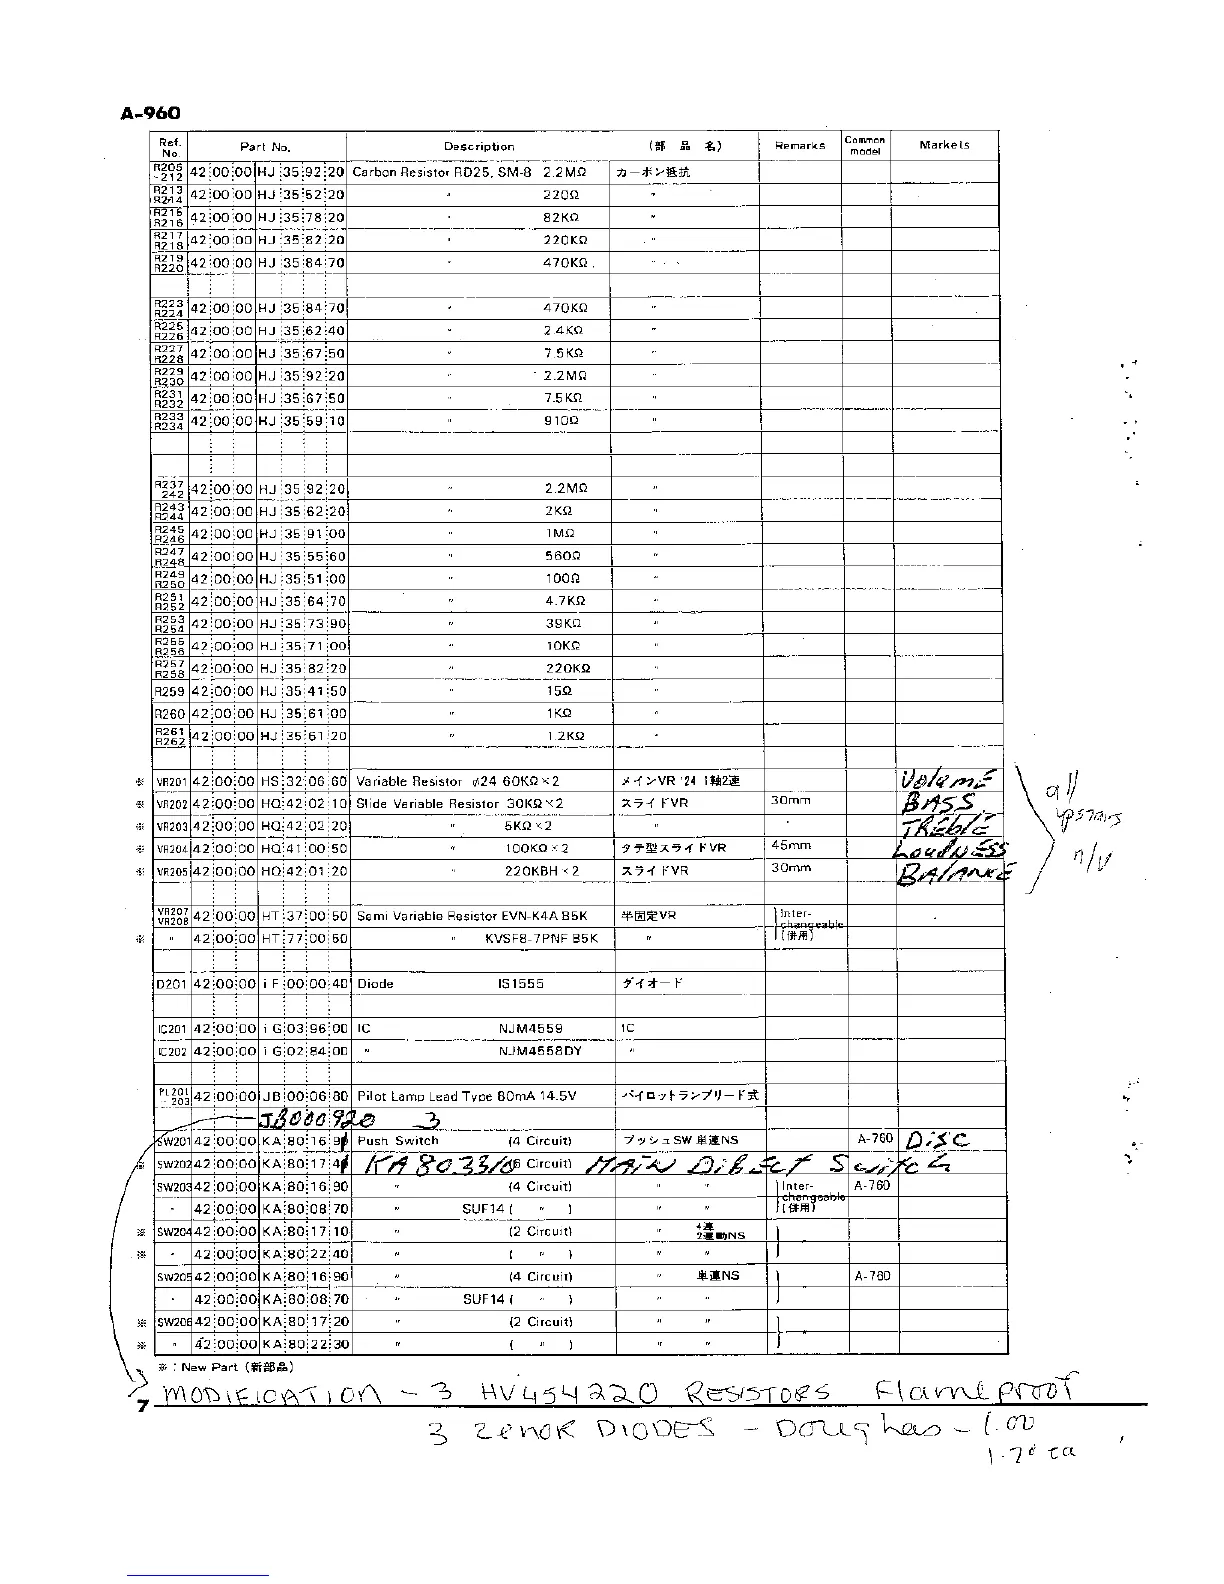 A-960
Ref. No. Part No. Description (部品名) Remarks Common model Markets
R205 ~212 42 00 00 HJ 35 92 20 Carbon Resistor RD25, SM-8 2.2MΩ カーボン抵抗
R213 R214 42 00 00 HJ 35 52 20 〃 220Ω 〃
R215 R216 42 00 00 HJ 35 78 20 〃 82KΩ 〃
R217 R218 42 00 00 HJ 35 82 20 〃 220KΩ 〃
R219 R220 42 00 00 HJ 35 84 70 〃 470KΩ 〃
R223 R224 42 00 00 HJ 35 84 70 〃 470KΩ 〃
R225 R226 42 00 00 HJ 35 62 40 〃 2.4KΩ 〃
R227 R228 42 00 00 HJ 35 67 50 〃 7.5KΩ 〃
R229 R230 42 00 00 HJ 35 92 20 〃 2.2MΩ 〃
R231 R232 42 00 00 HJ 35 67 50 〃 7.5KΩ 〃
R233 R234 42 00 00 HJ 35 59 10 〃 910Ω 〃
R237 242 42 00 00 HJ 35 92 20 〃 2.2MΩ 〃
R243 R244 42 00 00 HJ 35 62 20 〃 2KΩ 〃
R245 R246 42 00 00 HJ 35 91 00 〃 1MΩ 〃
R247 R248 42 00 00 HJ 35 55 60 〃 560Ω 〃
R249 R250 42 00 00 HJ 35 51 00 〃 100Ω 〃
R251 R252 42 00 00 HJ 35 64 70 〃 4.7KΩ 〃
R253 R254 42 00 00 HJ 35 73 90 〃 39KΩ 〃
R255 R256 42 00 00 HJ 35 71 00 〃 10KΩ 〃
R257 R258 42 00 00 HJ 35 82 20 〃 220KΩ 〃
R259 42 00 00 HJ 35 41 50 〃 15Ω 〃
R260 42 00 00 HJ 35 61 00 〃 1KΩ 〃
R261 R262 42 00 00 HJ 35 61 20 〃 1.2KΩ 〃
※ VR201 42 00 00 HS 32 06 60 Variable Resistor φ24 60KΩ×2 メインVR '24 1軸2連 VolumE
※ VR202 42 00 00 HQ 42 02 10 Slide Variable Resistor 30KΩ×2 スライドVR 30mm BASS
※ VR203 42 00 00 HQ 42 02 20 〃 5KΩ×2 〃 〃 TREblE
※ VR204 42 00 00 HQ 41 00 50 〃 100KΩ×2 タテ型スライドVR 45mm LoudNESS
※ VR205 42 00 00 HQ 42 01 20 〃 220KBH×2 スライドVR 30mm BAlANCE
all upstairs n/v
VR207 VR208 42 00 00 HT 37 00 50 Semi Variable Resistor EVN-K4A B5K 半固定VR Inter-changeable (併用)
※ 〃 42 00 00 HT 77 00 50 〃 KVSF8-7PNF B5K 〃
D201 42 00 00 iF 00 00 40 Diode IS1555 ダイオード
IC201 42 00 00 iG 03 96 00 IC NJM4559 IC
IC202 42 00 00 iG 02 84 00 〃 NJM4558DY 〃
PL201 ~203 42 00 00 JB 00 06 80 Pilot Lamp Lead Type 80mA 14.5V パイロットランプリード式
JB000920 3
SW201 42 00 00 KA 80 16 9 Push Switch (4 Circuit) プッシュSW 単連NS A-760 DiSC
※ SW202 42 00 00 KA 80 17 4 KA80331 (6 Circuit) MAIN DiRECT Switch
SW203 42 00 00 KA 80 16 90 〃 (4 Circuit) 〃 〃 Inter-changeable (併用) A-760
〃 42 00 00 KA 80 08 70 〃 SUF14 ( 〃 ) 〃 〃
※ SW204 42 00 00 KA 80 17 10 〃 (2 Circuit) 〃 4連 2連動NS
※ 〃 42 00 00 KA 80 22 40 ( 〃 ) 〃 〃
SW205 42 00 00 KA 80 16 90 〃 (4 Circuit) 〃 単連NS A-760
〃 42 00 00 KA 80 08 70 〃 SUF14 ( 〃 ) 〃 〃
※ SW206 42 00 00 KA 80 17 20 〃 (2 Circuit) 〃 〃
※ 〃 42 00 00 KA 80 22 30 〃 ( 〃 ) 〃 〃
※ : New Part (新部品)
7 MODIFICATION - 3 HV454220 RESISTORS Flameproof
3 ZENOR DIODES - Doughas - 1.00
1.70 ea